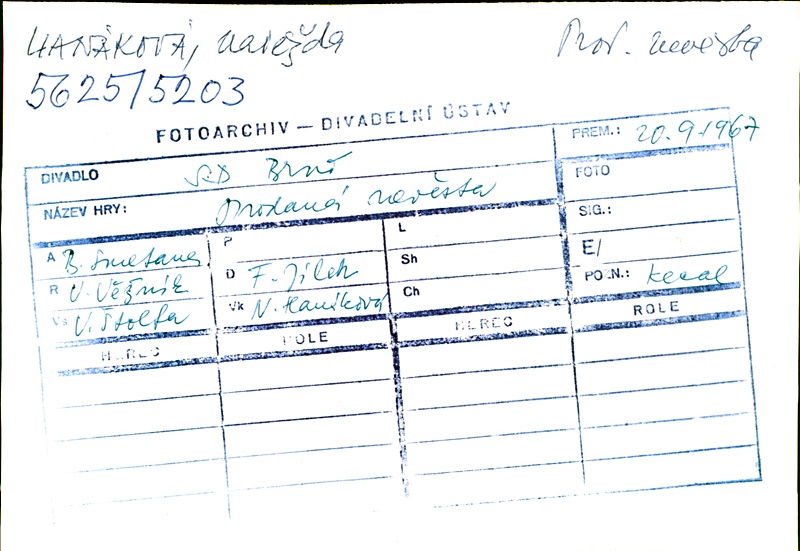 HANÁKOVÁ, Naděžda
Prod. nevěsta
5625/5203
FOTOARCHIV — DIVADELNÍ ÚSTAV
DIVADLO SD Brně
PREM.: 20.9.1967
NÁZEV HRY: Prodaná nevěsta
FOTO
SIG.:
E/
POZN.: kecal
A B. Smetana
P
L
R V. Věžník
D F. Jílek
Sh
Vs V. Štolfa
Vk N. Hanáková
Ch
HEREC ROLE HEREC ROLE